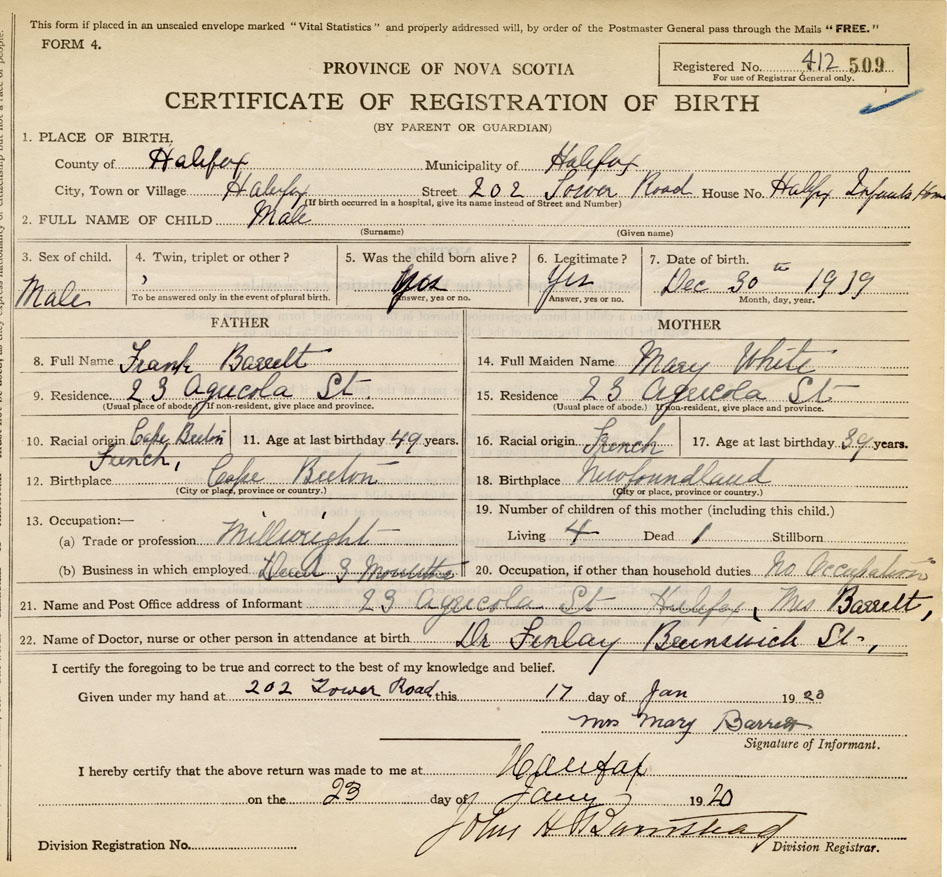 This form if placed in an unsealed envelope marked "Vital Statistics" and properly addressed will, by order of the Postmaster General pass through the Mails "FREE."
FORM 4.
Registered No. 412 509
For use of Registrar General only.
PROVINCE OF NOVA SCOTIA
CERTIFICATE OF REGISTRATION OF BIRTH
(BY PARENT OR GUARDIAN)
1. PLACE OF BIRTH,
County of Halifax Municipality of Halifax
City, Town or Village Halifax Street 202 Tower Road House No. Halifx Infants Home
(If birth occurred in a hospital, give its name instead of Street and Number)
2. FULL NAME OF CHILD Male
(Surname) (Given name)
3. Sex of child. 4. Twin, triplet or other? 5. Was the child born alive? 6. Legitimate? 7. Date of birth.
Male Yes Yes Dec 30th 1919
To be answered only in the event of plural birth. Answer, yes or no. Answer, yes or no. Month, day, year.
FATHER MOTHER
8. Full Name Frank Barrett 14. Full Maiden Name Mary White
9. Residence 23 Agricola St. 15. Residence 23 Agricola St
(Usual place of abode.) If non-resident, give place and province. (Usual place of abode.) If non-resident, give place and province.
10. Racial origin Cape Breton French, 11. Age at last birthday 49 years. 16. Racial origin French 17. Age at last birthday 39 years.
12. Birthplace Cape Breton 18. Birthplace Newfoundland
(City or place, province or country.) (City or place, province or country.)
13. Occupation:— 19. Number of children of this mother (including this child.)
(a) Trade or profession Millwright Living 4 Dead 1 Stillborn
(b) Business in which employed 20. Occupation, if other than household duties No Occupation
21. Name and Post Office address of Informant 23 Agricola St Halifax, Mrs Barrett,
22. Name of Doctor, nurse or other person in attendance at birth Dr Finlay Brunswick St.,
I certify the foregoing to be true and correct to the best of my knowledge and belief.
Given under my hand at 202 Tower Road this 17 day of Jan 1920
Mrs Mary Barrett
Signature of Informant.
I hereby certify that the above return was made to me at Halifax
on the 23 day of Jany 1920
John H Barnstead
Division Registration No. Division Registrar.